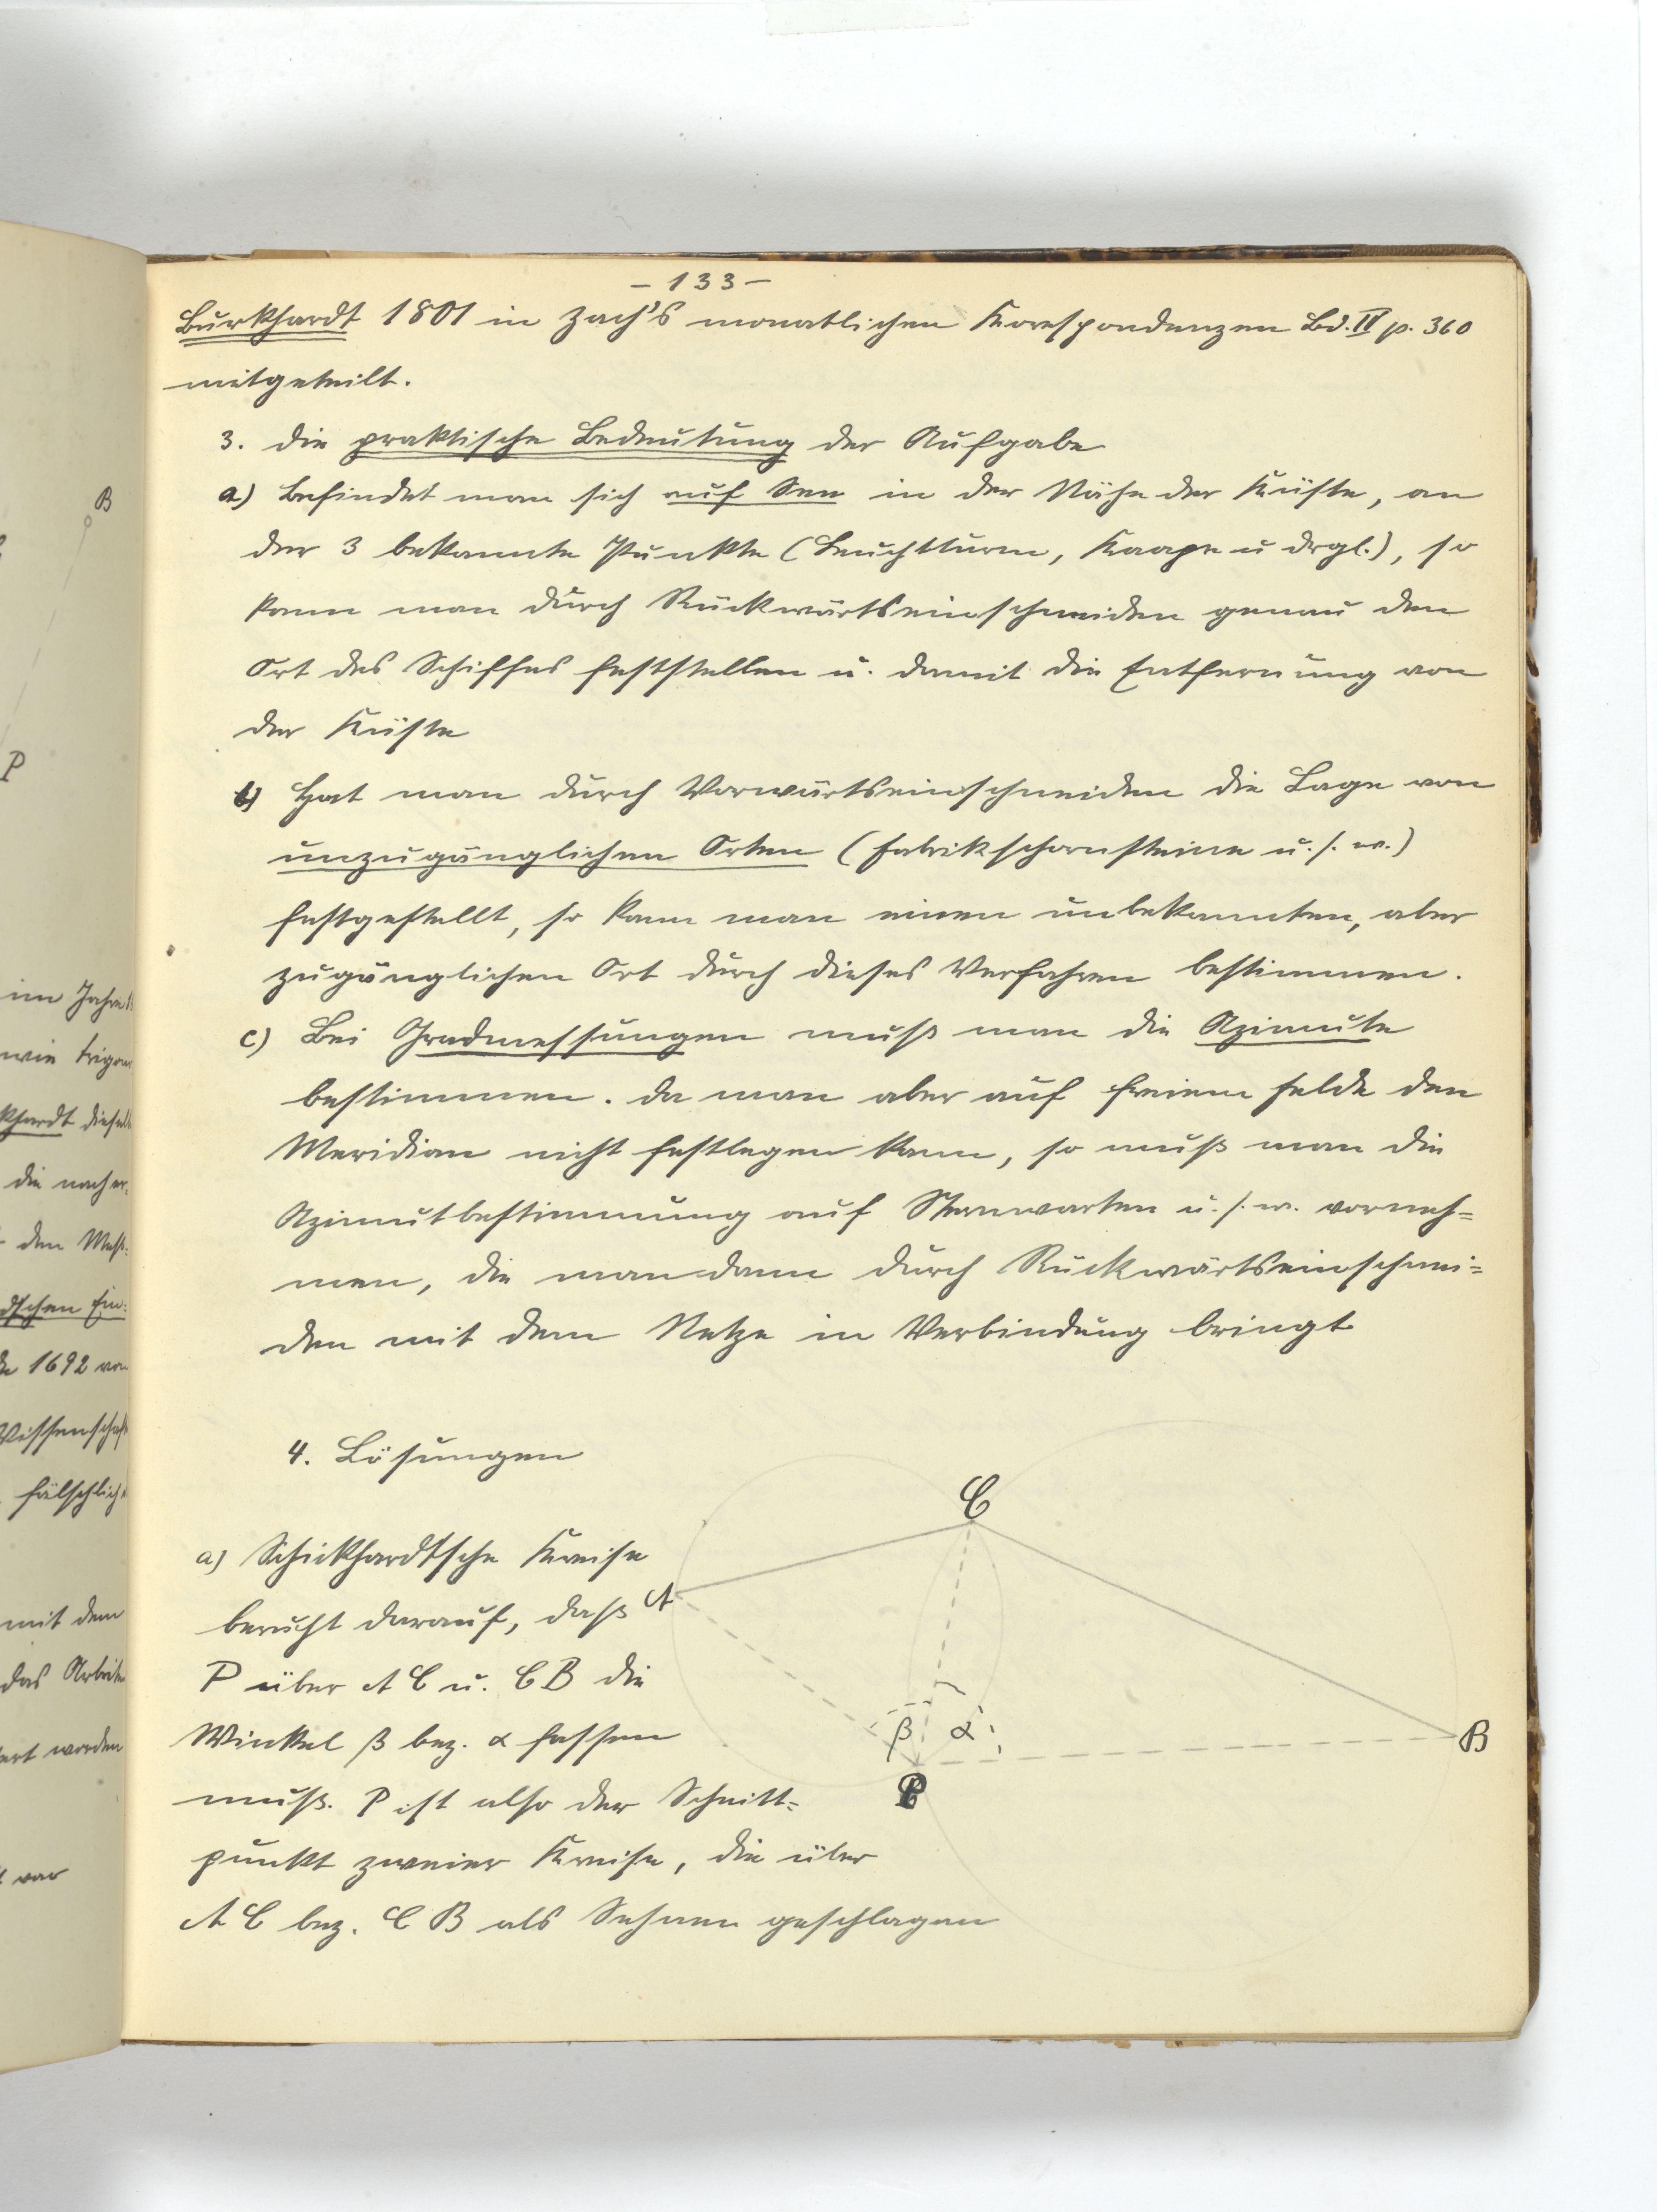 – 133 –
Burkhardt 1801 in Zach's monatlichen Korespondenzen Bd. IV p. 360
mitgeteilt.
3. die praktische Bedeutung der Aufgabe
a) Befindet man sich auf See in der Nähe der Küste, an
der 3 bekannte Punkte (Leuchtturm, Kaape u drgl.), so
kann man durch Rückwärtseinschneiden genau den
Ort des Schiffes feststellen u. damit die Entfernung von
der Küste
b) Hat man durch Vorwärtseinschneiden die Lage von
unzugänglichen Orten (Fabrikschornsteine u.s.w.)
festgestellt, so kann man einen unbekannten, aber
zugänglichen Ort durch dieses Verfahren bestimmen.
c) Bei Gradmessungen muß man die Azimute
bestimmen. da man aber auf freiem Felde den
Meridian nicht festlegen kann, so muß man die
Azimutbestimmung auf Sternwarten u.s.w. vorneh=
men, die man dann durch Rückwärtseinschnei=
den mit dem Netze in Verbindung bringt
4. Lösungen
a) Schickhardt'sche Kreise
beruht darauf, daß
P über AC u. CB die
Winkel β bez. α fassen
muß. P ist also der Schnitt=
punkt zweier Kreise, die über
AC bez. CB als Sehnen geschlagen
C
A
β α
B
P
B
P
im Jahre
wie trigon
khardt diese
die nach er:
den Meß:
dschen Ein:
1692 von
Wissenschaft
fälschlich
mit dem
das Arbeite
ert worden
war